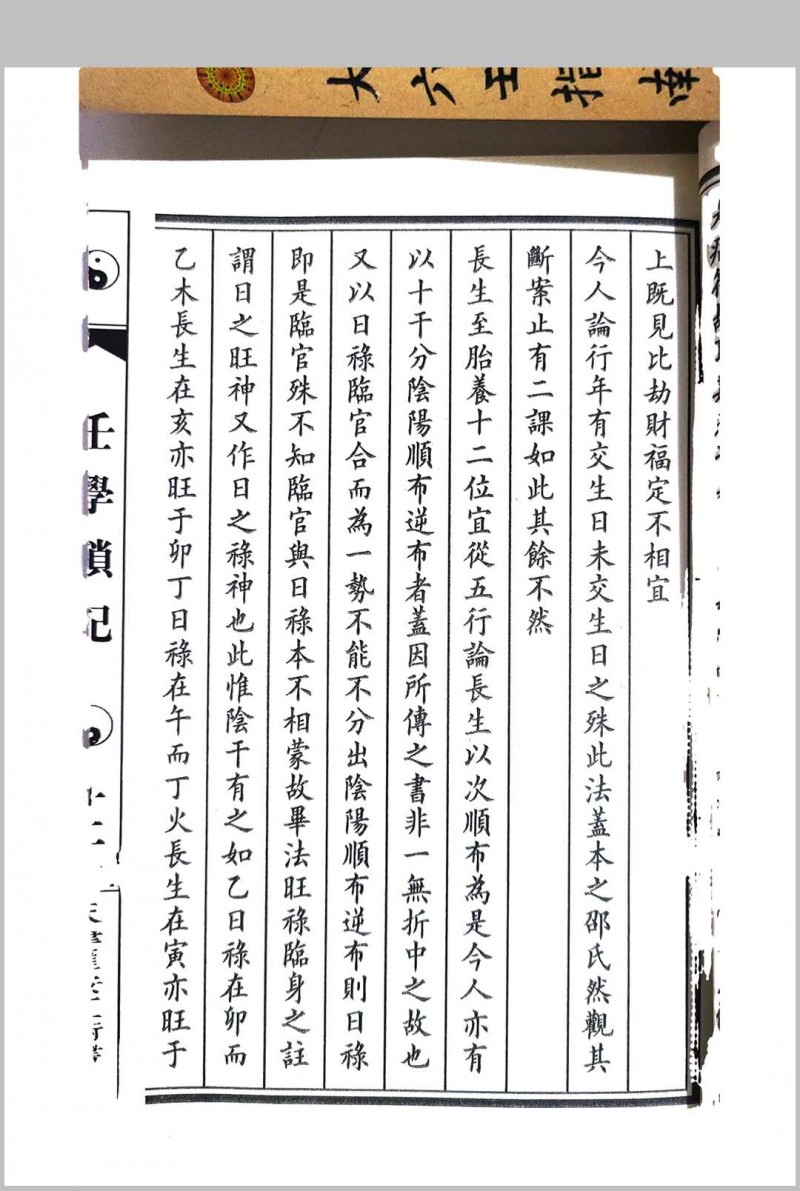 大六壬指
上既見比劫財福定不相宜
今人論行年有交生日未交生日之殊此法蓋本之邵氏然觀其
斷案止有二課如此其餘不然
長生至胎養十二位宜從五行論長生以次順布為是今人亦有
以十干分陰陽順布逆布者蓋因所傳之書非一無折中之故也
又以日祿臨官合而為一勢不能不分出陰陽順布逆布則日祿
即是臨官殊不知臨官與日祿本不相蒙故畢法旺祿臨身之註
謂日之旺神又作日之祿神也此惟陰干有之如乙日祿在卯而
乙木長生在亥亦旺于卯丁日祿在午而丁火長生在寅亦旺于
壬學瑣記